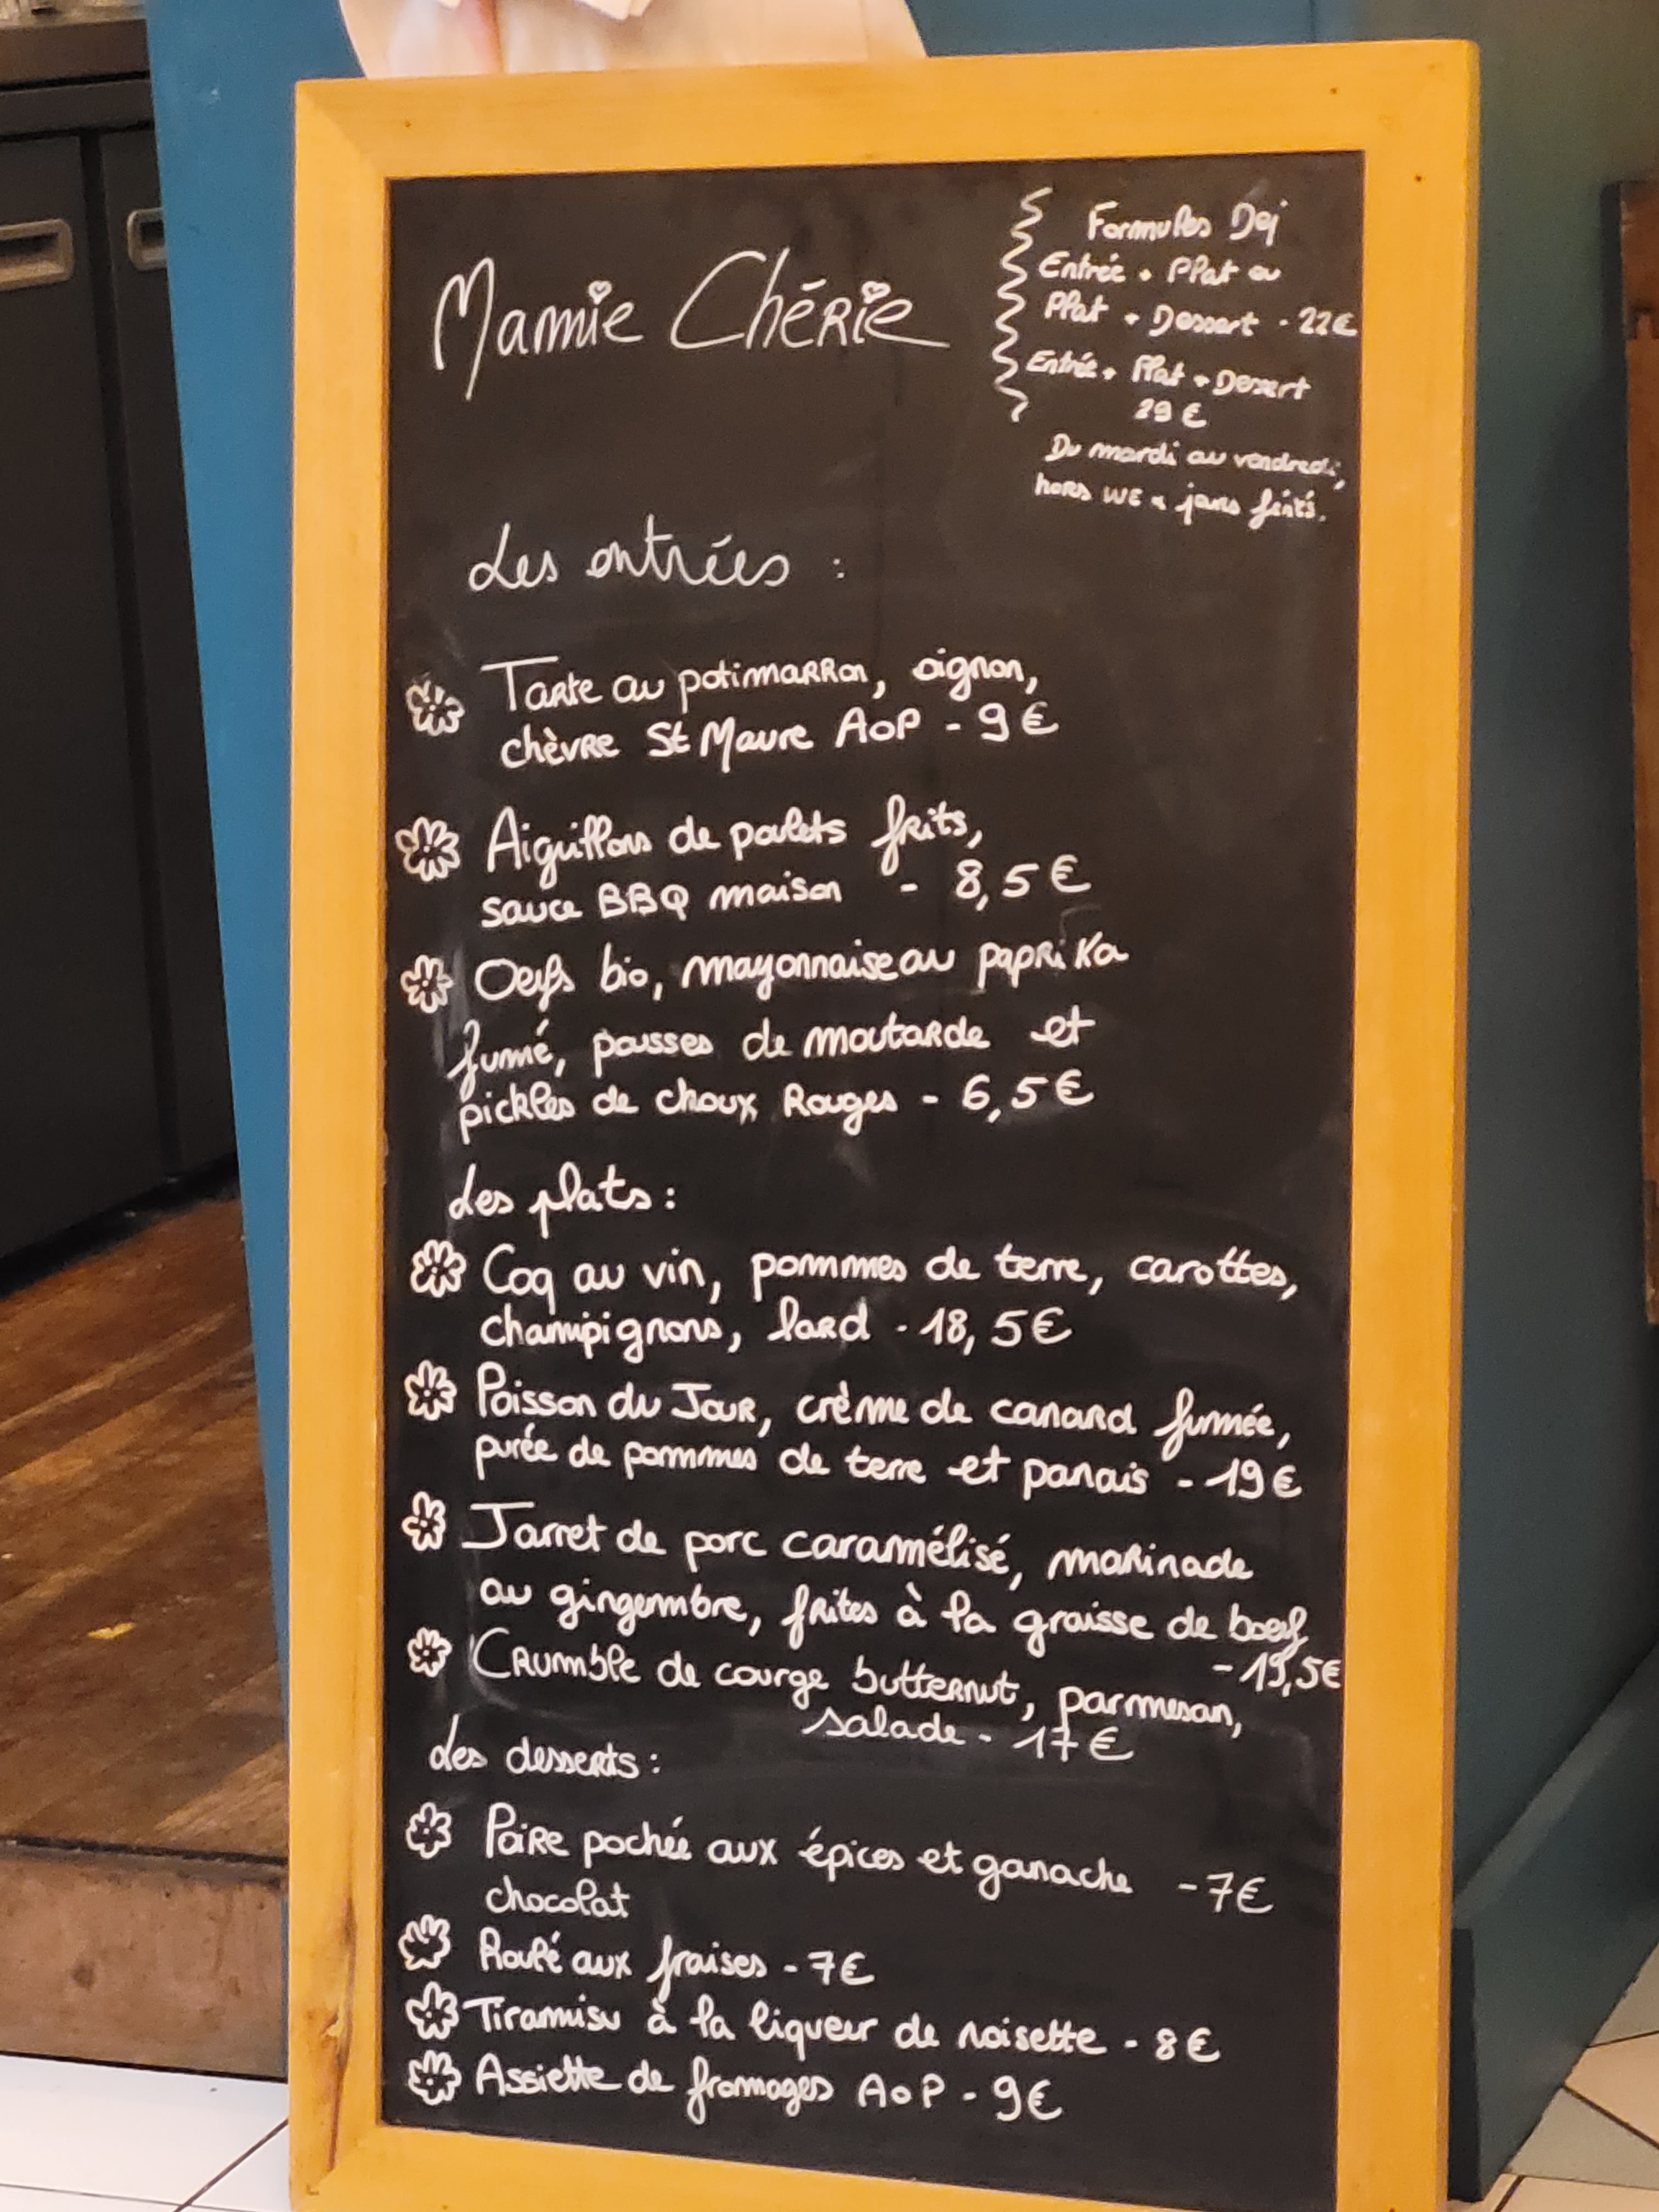 Mamie Chérie
Formules Dej
Entrée + Plat ou
Plat + Dessert - 22€
Entrée + Plat + Dessert
29 €
Du mardi au vendredi,
hors WE & jours fériés.
Les entrées :
Tarte au potimarron, oignon,
chèvre St Maure AOP - 9€
Aiguillons de poulets frits,
sauce BBQ maison - 8,5€
Oeufs bio, mayonnaise au paprika
fumé, pousses de moutarde et
pickles de choux Rouges - 6,5€
Les plats :
Coq au vin, pommes de terre, carottes,
champignons, lard - 18,5€
Poisson du Jour, crème de canard fumée,
purée de pommes de terre et panais - 19€
Jarret de porc caramélisé, marinade
au gingembre, frites à la graisse de boeuf
- 19,5€
Crumble de courge butternut, parmesan,
salade - 17€
Les desserts :
Poire pochée aux épices et ganache - 7€
chocolat
Roulé aux fraises - 7€
Tiramisu à la liqueur de noisette - 8€
Assiette de fromages AOP - 9€